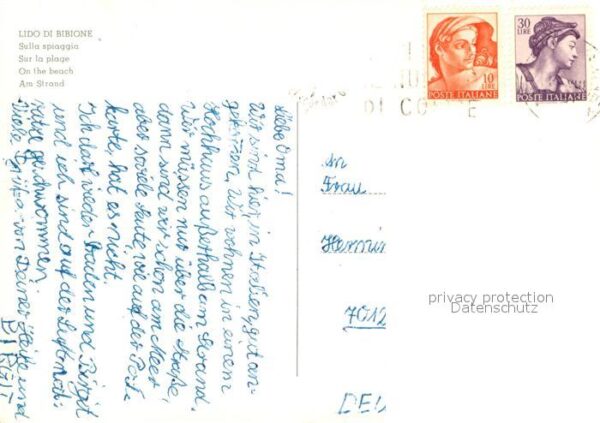 LIDO DI BIBIONE
Sulla spiaggia
Sur la plage
On the beach
Am Strand
10
LIRE
POSTE ITALIANE
30
LIRE
POSTE ITALIANE
Liebe Oma!
Wir sind hier in Italien gut an-
gekommen. Wir wohnen in einem
Hochhaus außerhalb am Strand.
Wir müssen nur über die Straße
dann sind wir schon am Meer
aber soviele Leute wie auf der Post-
karte, hat es nicht.
Ich darf wieder baden und Birgit
und ich sind auf der Luftma-
tratze geschwommen.
Viele Grüße von Deiner Heike und
BIRGIT
An
Frau
Hermin
7012
DEU
privacy protection
Datenschutz